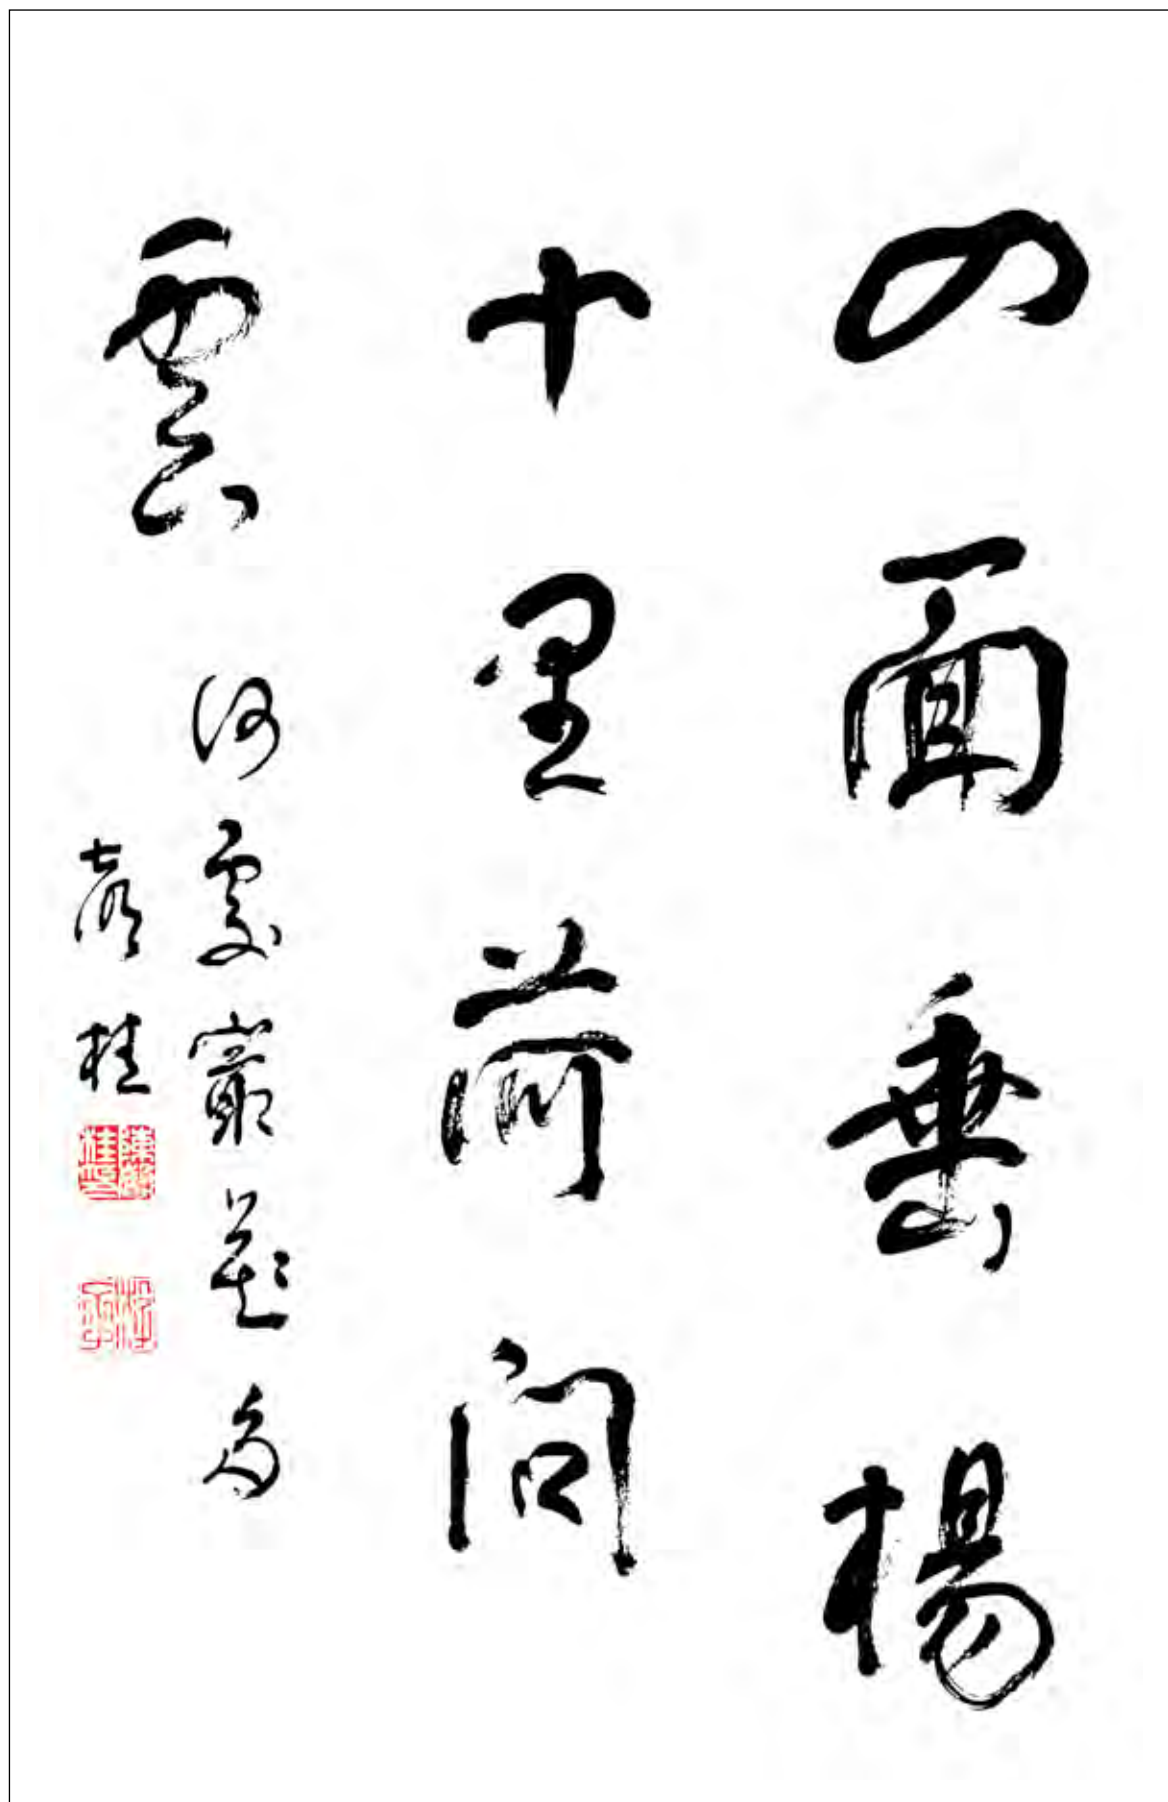 四面垂楊
十里荷問
雲
何處最花多
桂